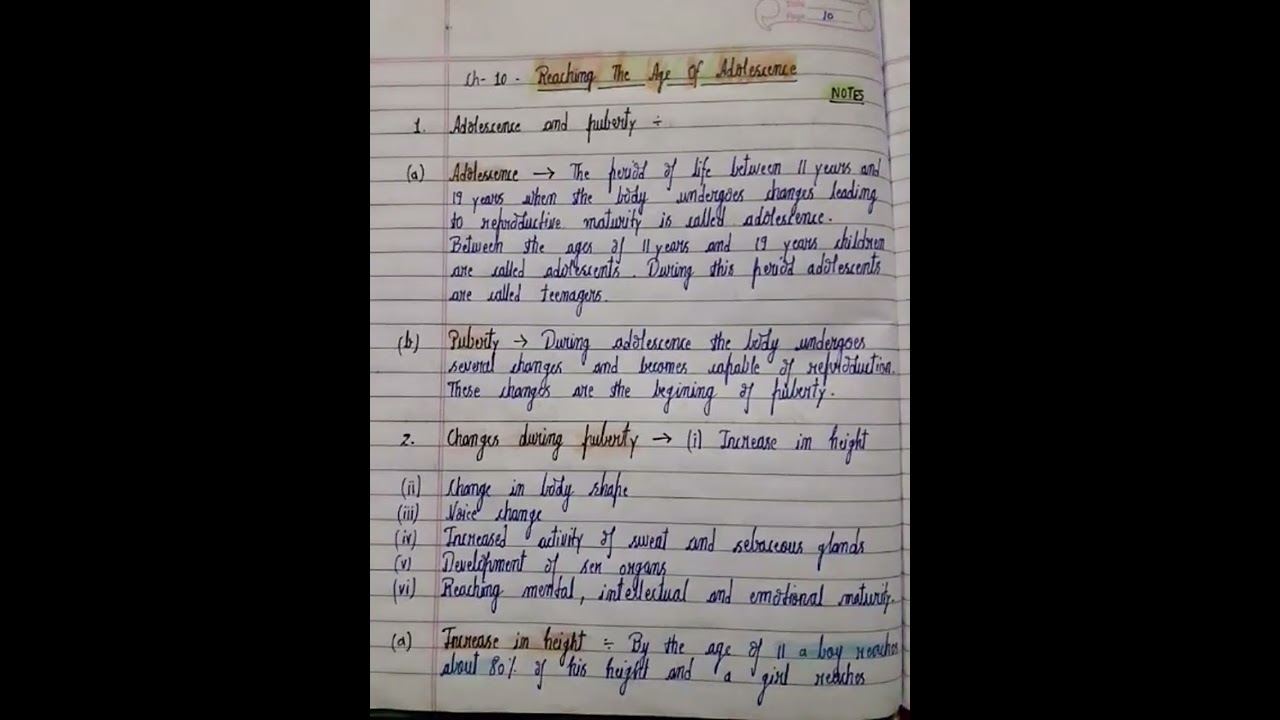 Date
Page 10
Ch- 10 - Reaching The Age Of Adolescence
NOTES
1. Adolescence and puberty ÷
(a) Adolescence → The period of life between 11 years and
19 years when the body undergoes changes leading
to reproductive maturity is called adolescence.
Between the ages of 11 years and 19 years children
are called adolescents. During this period adolescents
are called teenagers.
(b) Puberty → During adolescence the body undergoes
several changes and becomes capable of reproduction.
These changes are the begining of puberty.
2. Changes during puberty → (i) Increase in height
(ii) Change in body shape
(iii) Voice change
(iv) Increased activity of sweat and sebaceous glands
(v) Development of sex organs
(vi) Reaching mental, intellectual and emotional maturity.
(a) Increase in height ÷ By the age of 11 a boy reaches
about 80% of his height and a girl reaches